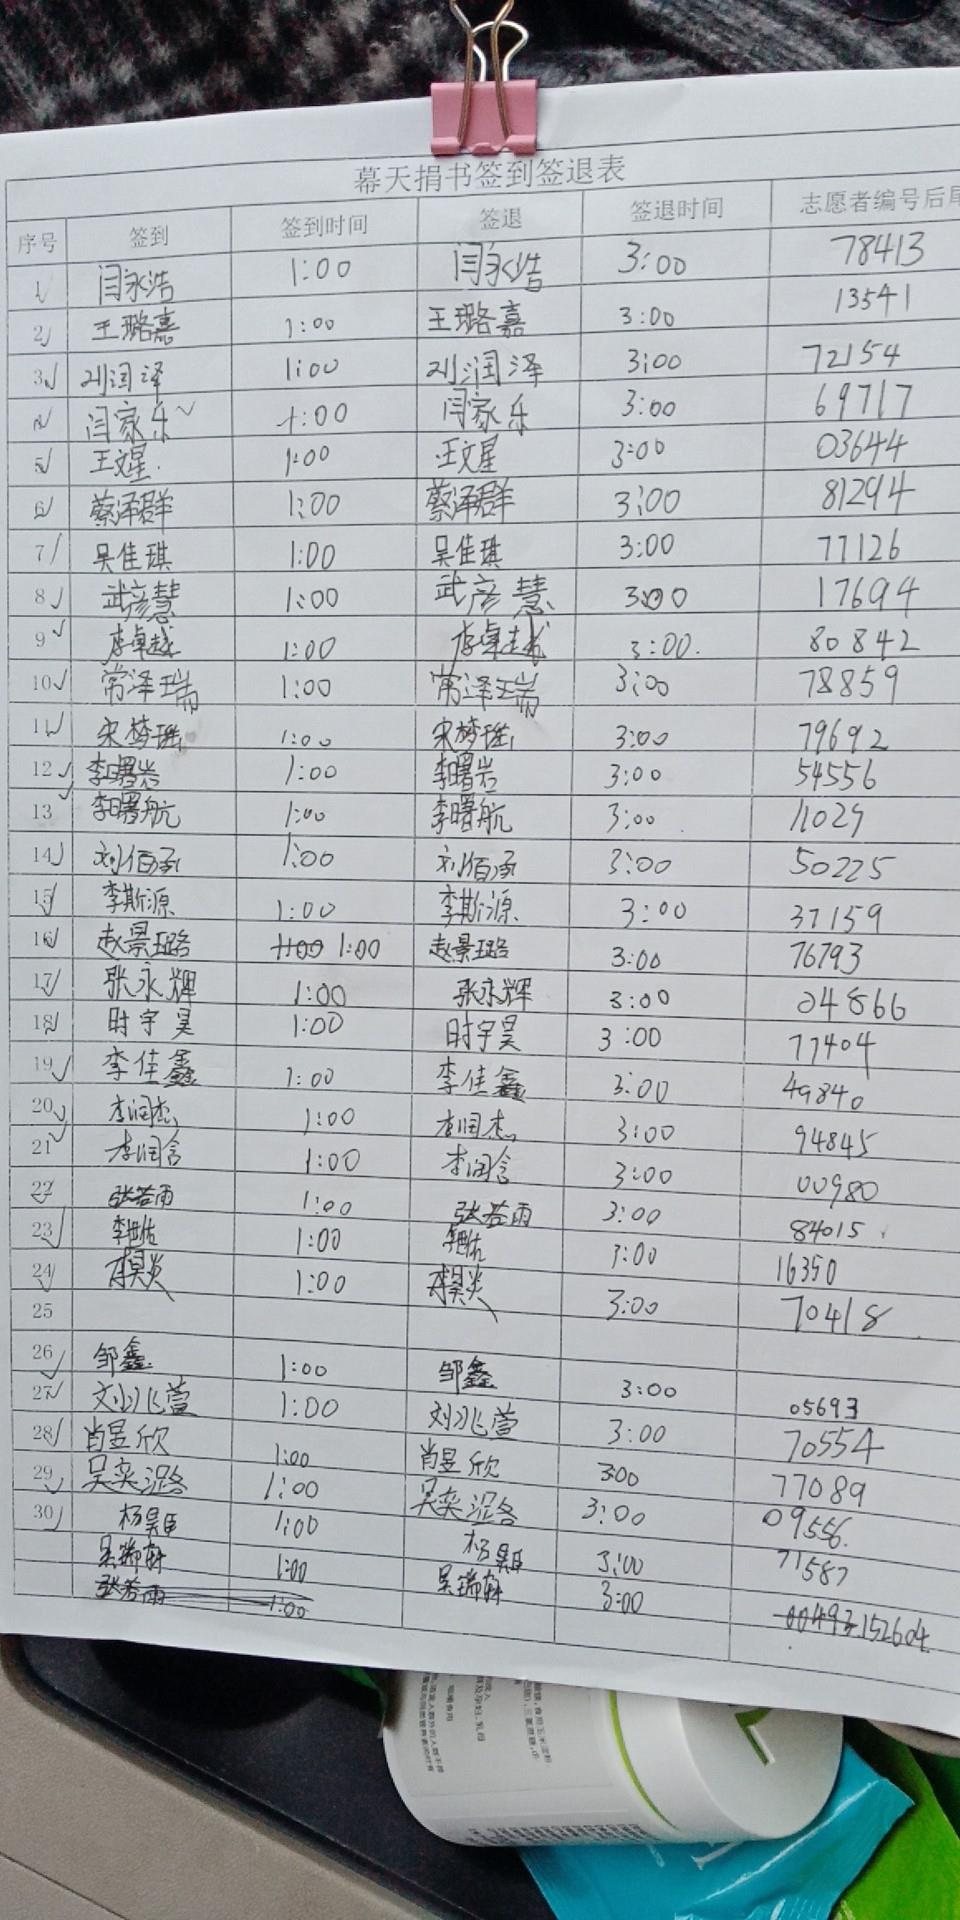 幕天捐书签到签退表
序号 签到 签到时间 签退 签退时间 志愿者编号后
1 闫永浩 1:00 闫永浩 3:00 78413
2 王璐嘉 1:00 王璐嘉 3:00 13541
3 刘润泽 1:00 刘润泽 3:00 72154
4 闫家乐 1:00 闫家乐 3:00 69717
5 王文星 1:00 王文星 3:00 03644
6 蔡泽群 1:00 蔡泽群 3:00 81294
7 吴佳琪 1:00 吴佳琪 3:00 77126
8 武彦慧 1:00 武彦慧 3:00 17694
9 李卓越 1:00 李卓越 3:00 80842
10 常泽瑞 1:00 常泽瑞 3:00 78859
11 宋梦瑶 1:00 宋梦瑶 3:00 79692
12 李曙岩 1:00 李曙岩 3:00 54556
13 李曙航 1:00 李曙航 3:00 11029
14 刘佰承 1:00 刘佰承 3:00 50225
15 李斯源 1:00 李斯源 3:00 37159
16 赵景璐 1:00 1:00 赵景璐 3:00 76793
17 张永辉 1:00 张永辉 3:00 04866
18 时宇昊 1:00 时宇昊 3:00 77404
19 李佳鑫 1:00 李佳鑫 3:00 49840
20 李润杰 1:00 李润杰 3:00 94845
21 李润含 1:00 李润含 3:00 00980
22 张若雨 1:00 张若雨 3:00 84015
23 1:00 3:00 16350
24 李昊炎 1:00 李昊炎 3:00 70418
25
26 邹鑫 1:00 邹鑫 3:00 05693
27 刘兆萱 1:00 刘兆萱 3:00 70554
28 肖昱欣 1:00 肖昱欣 3:00 77089
29 吴奕 1:00 吴奕 3:00 09556
30 1:00 3:00 71587
吴瑞 1:00 吴瑞 3:00 152604
张若雨 1:00